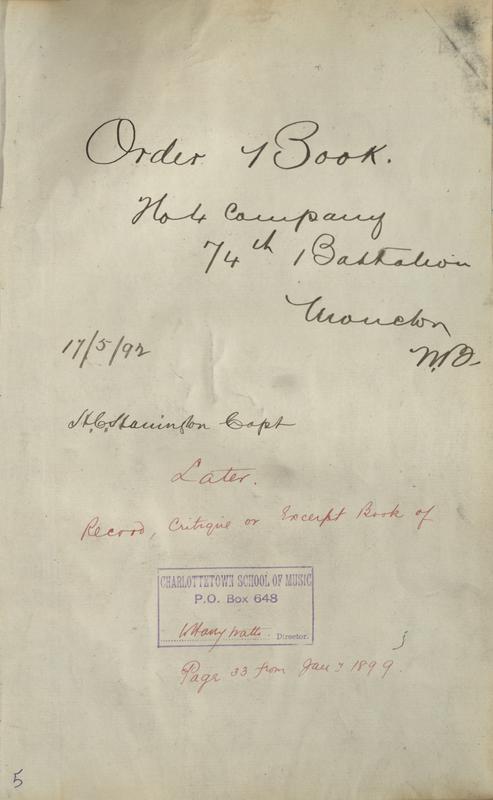 Order Book.
No 4 Company
74th Battalion
Moncton
N.B.
17/5/92
Capt
Later.
Record, Critique or Excerpt Book of
CHARLOTTETOWN SCHOOL OF MUSIC
P.O. Box 648
Watts Director.
Page 33 from Jany 1899.
5